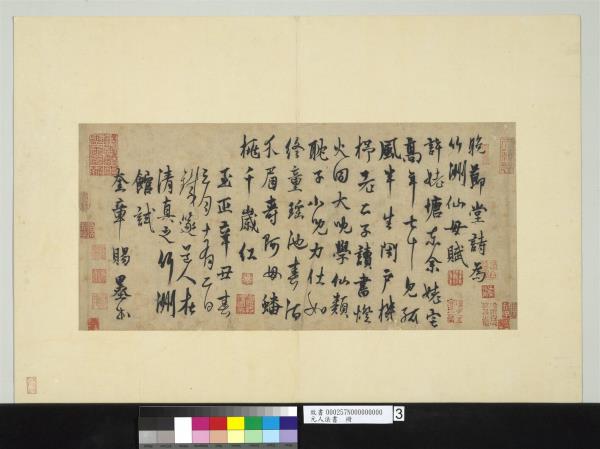 晚節堂詩為
竹洲仙母賦
許姥塘東余姥宅
高年七十見孤
風半生閉戶機
杼老二子讀書燈
火同大兒學仙類
耽子小兒力仕如
終童瑤池春酒
介眉壽阿母蟠
桃千歲紅
至正辛丑春
三月十有二日
道人在
清真之竹洲
館試
奎章賜墨書
故書 000257N000000000
元人法書 冊
3